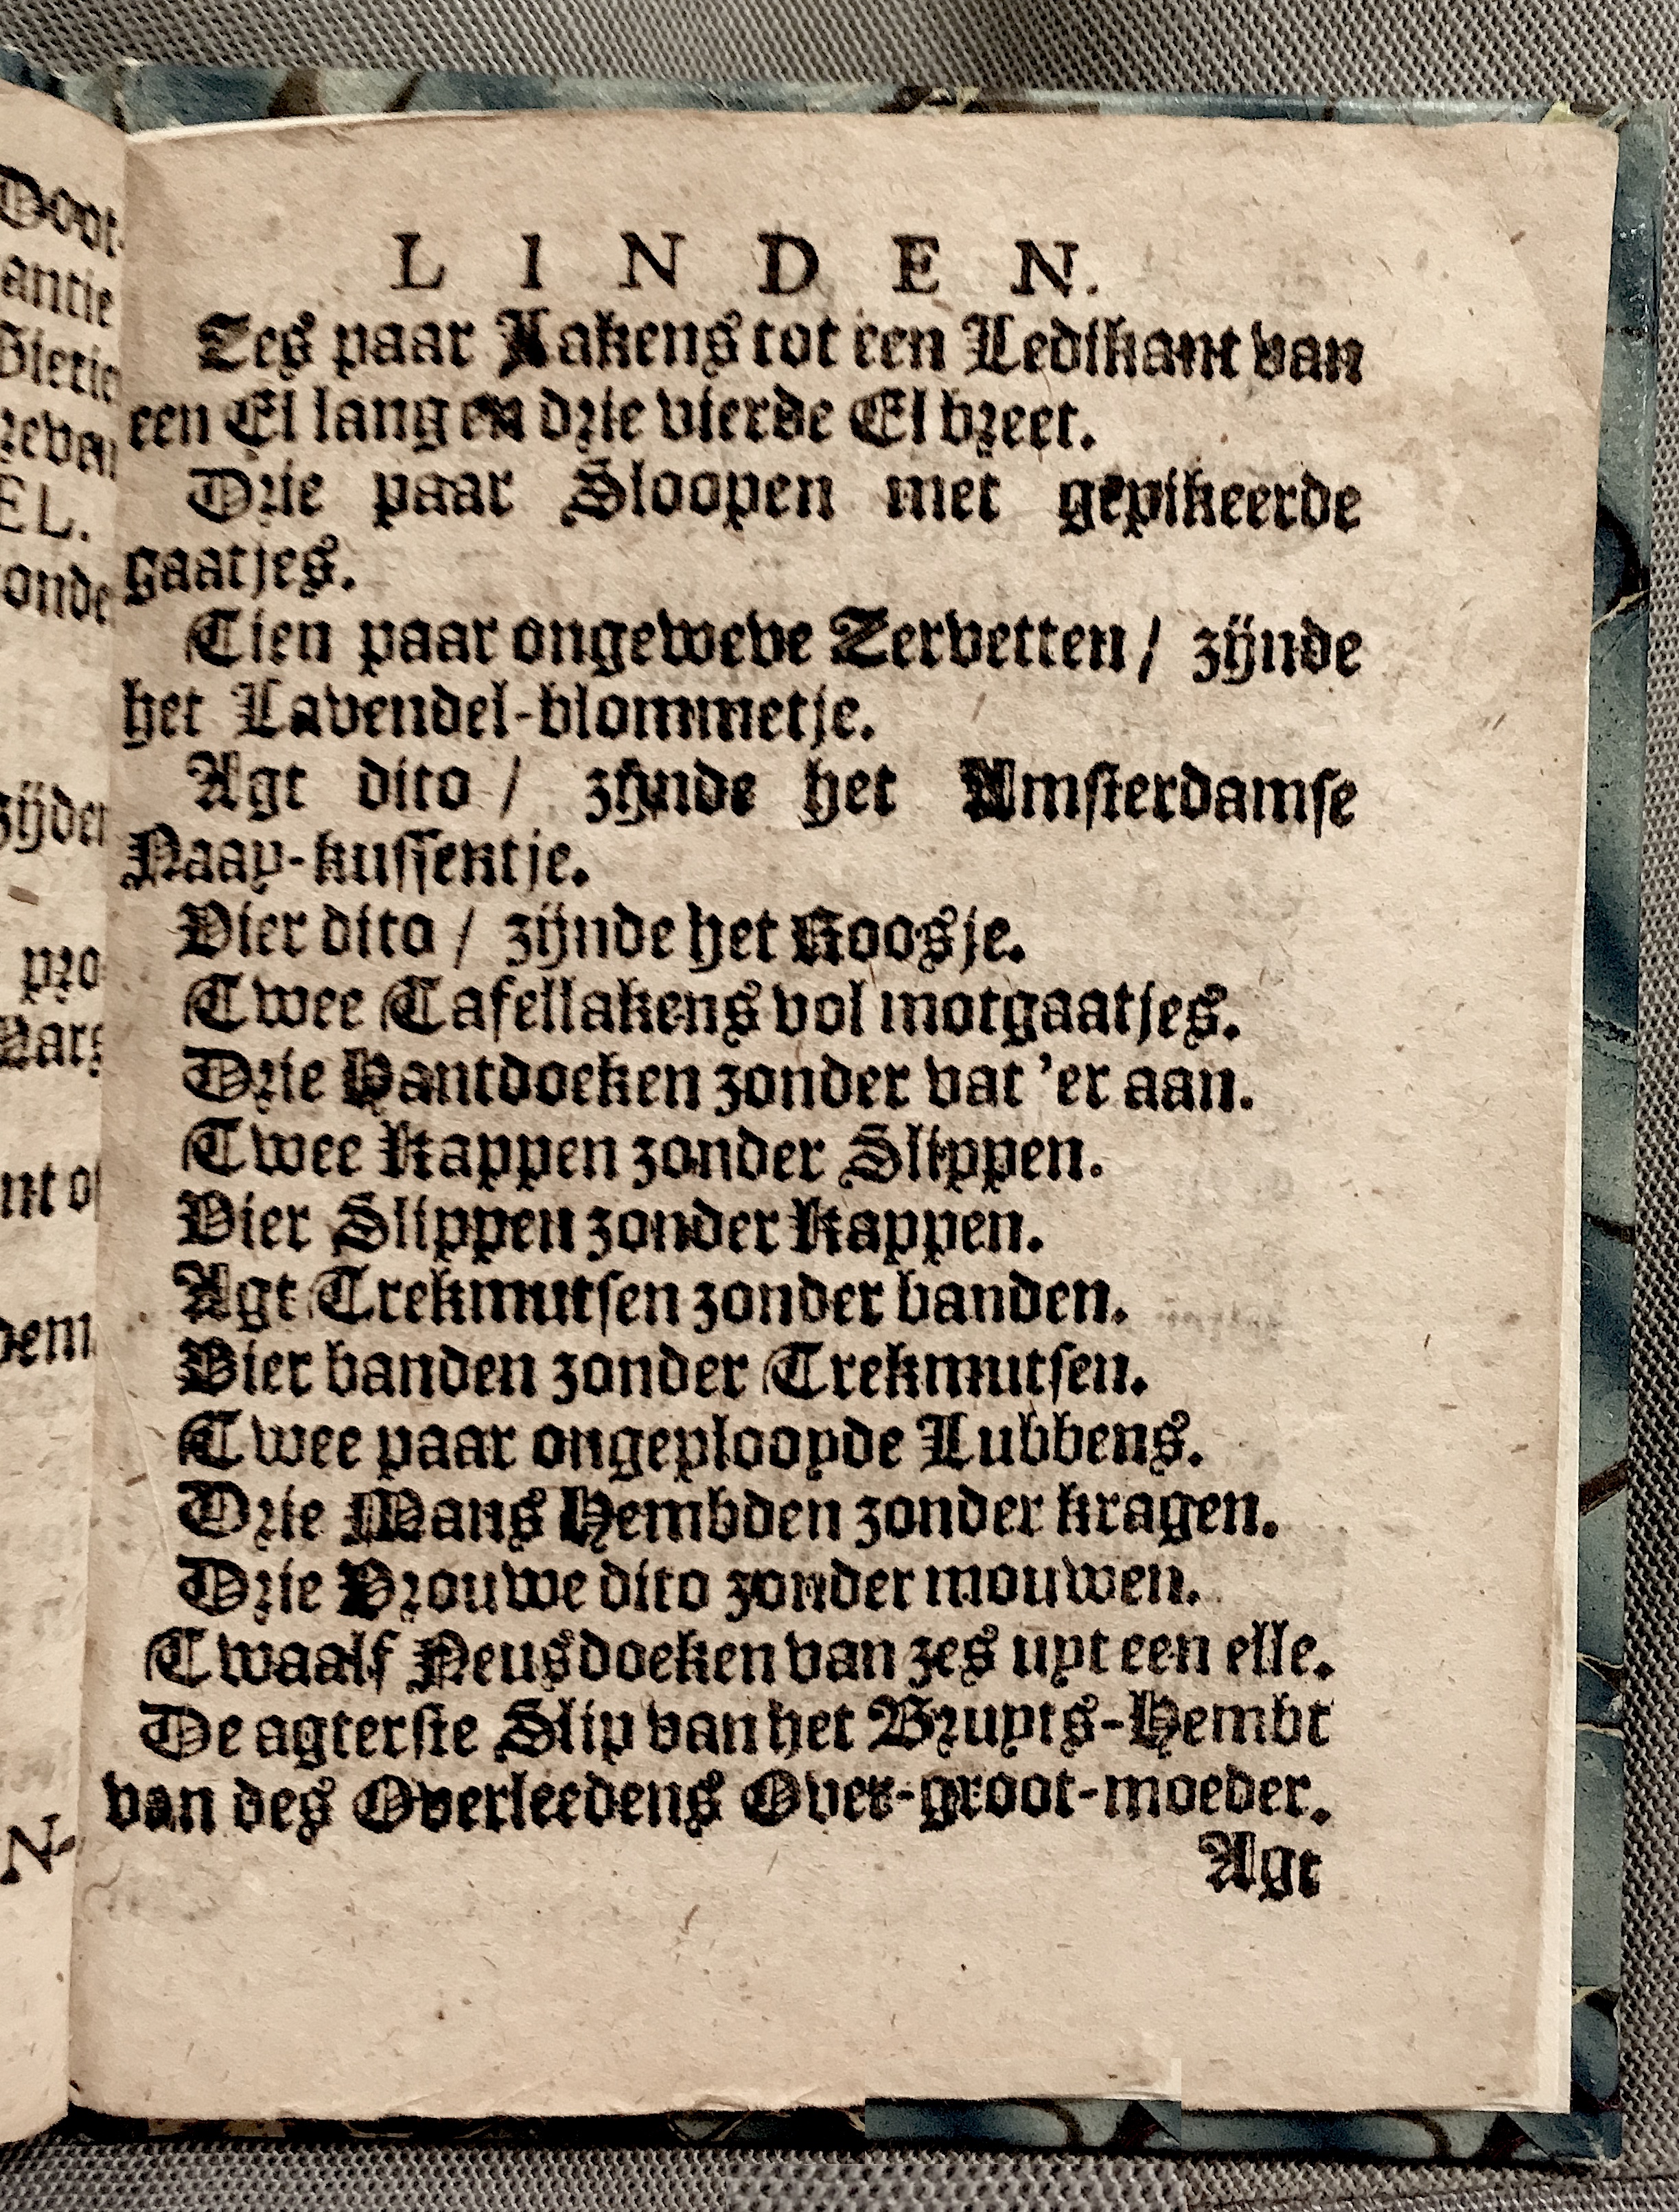 LINDEN.
Zes paar Lakens tot een Ledikant van
een El lang en drie vierde El breet.
Drie paar Sloopen met gepikeerde
gaatjes.
Tien paar ongeweve Zervetten / zijnde
het Lavendel-blommetje.
Agt dito / zijnde het Amsterdamse
Naay-kussentje.
Vier dito / zijnde het Roosje.
Twee Tafellakens vol motgaatjes.
Drie Hantdoeken zonder vat 'er aan.
Twee Kappen zonder Slippen.
Vier Slippen zonder Kappen.
Agt Trekmutsen zonder banden.
Vier banden zonder Trekmutsen.
Twee paar ongeplooyde Lubbens.
Drie Mans Hembden zonder kragen.
Drie Vrouwe dito zonder mouwen.
Twaalf Neusdoeken van zes uyt een elle.
De agterste Slip van het Bruyts-Hembt
van des Overleedens Over-groot-moeder.
Agt